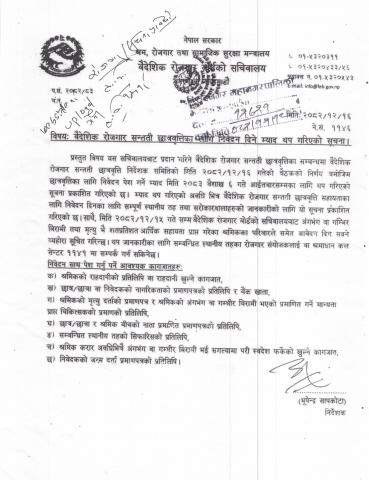 नेपाल सरकार
श्रम, रोजगार तथा सामाजिक सुरक्षा मन्त्रालय
वैदेशिक रोजगार बोर्डको सचिवालय
०१-५३२०३११
०१-५३२०५३३/५६
०१-५३२०५४३
E-mail: info@feb.gov.np
प.सं. २०८२/८३
च.नं.
मिति: २०८२/१२/१६
ने.सं. ११४६
विषयः वैदेशिक रोजगार सन्तती छात्रवृत्तिका लागि निवेदन दिने म्याद थप गरिएको सूचना।
प्रस्तुत विषय यस सचिवालयबाट प्रदान गरिने वैदेशिक रोजगार सन्तती छात्रवृत्तिका सम्बन्धमा वैदेशिक
रोजगार सन्तती छात्रवृत्ति निर्देशक समितिको मिति २०८२/१२/१६ गतेको बैठकको निर्णय बमोजिम
छात्रवृत्तिका लागि निवेदन पेश गर्ने म्याद मिति २०८३ वैशाख ६ गते आईतबारसम्मका लागि थप गरिएको
सूचना प्रकाशित गरिएको छ। म्याद थप गरिएको अवधि भित्र वैदेशिक रोजगार सन्तती छात्रवृत्ति सहायताका
लागि निवेदन दिनका लागि सम्पूर्ण स्थानीय तह तथा सरोकारवालाहरुको जानकारीको लागि यो सूचना प्रकाशित
गरिएको छ। साथै, मिति २०८२/१२/१५ गते सम्म वैदेशिक रोजगार बोर्डको सचिवालयबाट अंगभंग वा गम्भिर
बिरामी तथा मृत्यु भै शतप्रतिशत आर्थिक सहायता प्राप्त गरेका श्रमिकका परिवारले समेत आवेदन दिन सक्ने
व्यहोरा सूचित गरिन्छ। थप जानकारीका लागि सम्बन्धित स्थानीय तहका रोजगार संयोजकलाई वा श्रमाधान कल
सेन्टर ११४१ मा सम्पर्क गर्न सकिनेछ।
निवेदन साथ पेश गर्नु पर्ने आवश्यक कागजातहरु:
क) श्रमिकको राहदानीको प्रतिलिपि वा राहदानी खुल्ने कागजात,
ख) छात्र/छात्रा वा निवेदकको नागरिकताको प्रमाणपत्रको प्रतिलिपि र बैंक खाता,
ग) श्रमिकको मृत्यु दर्ताको प्रमाणपत्र र श्रमिकको अंगभंग वा गम्भीर बिरामी भएको प्रमाणित गर्ने मान्यता
प्राप्त चिकित्सकको प्रमाणको प्रतिलिपि,
घ) छात्र/छात्रा र श्रमिक बीचको नाता प्रमाणित प्रमाणपत्रको प्रतिलिपि,
ङ) सम्बन्धित स्थानीय तहको सिफारिसको प्रतिलिपि,
च) श्रमिक करार अवधिभित्रै अंगभंग वा गम्भीर बिरामी भई समस्यामा परी स्वदेश फर्केको खुल्ने कागजात,
छ) निवेदकको जन्म दर्ता प्रमाणपत्रको प्रतिलिपि।
(भूपेन्द्र सापकोटा)
निर्देशक